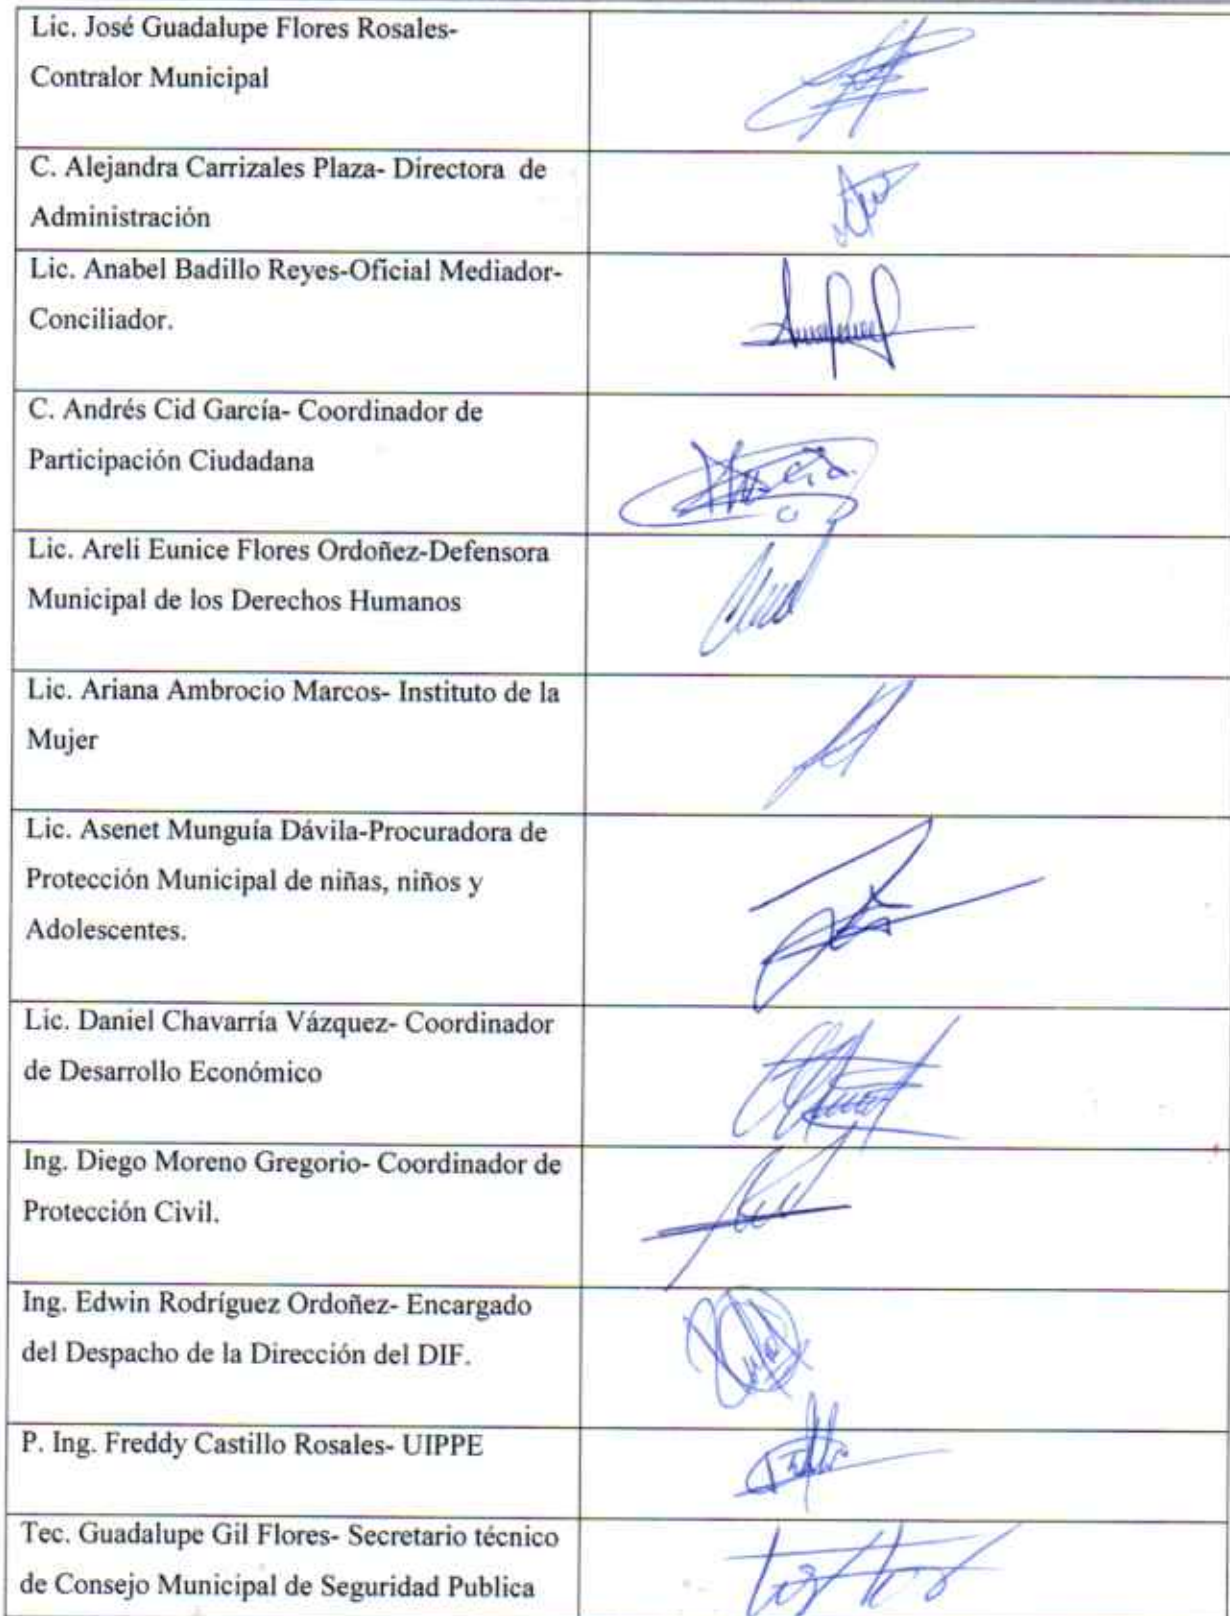 Lic. José Guadalupe Flores Rosales-
Contralor Municipal
C. Alejandra Carrizales Plaza- Directora de
Administración
Lic. Anabel Badillo Reyes-Oficial Mediador-
Conciliador.
C. Andrés Cid García- Coordinador de
Participación Ciudadana
Lic. Areli Eunice Flores Ordoñez-Defensora
Municipal de los Derechos Humanos
Lic. Ariana Ambrocio Marcos- Instituto de la
Mujer
Lic. Asenet Munguía Dávila-Procuradora de
Protección Municipal de niñas, niños y
Adolescentes.
Lic. Daniel Chavarría Vázquez- Coordinador
de Desarrollo Económico
Ing. Diego Moreno Gregorio- Coordinador de
Protección Civil.
Ing. Edwin Rodríguez Ordoñez- Encargado
del Despacho de la Dirección del DIF.
P. Ing. Freddy Castillo Rosales- UIPPE
Tec. Guadalupe Gil Flores- Secretario técnico
de Consejo Municipal de Seguridad Publica